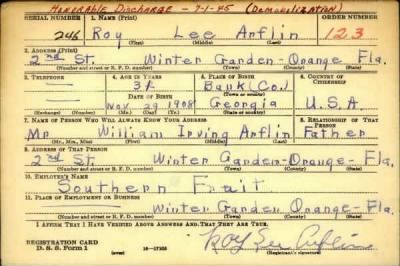 Honorable Discharge - 7-1-45 (Demobilization)
SERIAL NUMBER 1. NAME (Print) ORDER NUMBER
246 Roy Lee Anflin 123
(First) (Middle) (Last)
2. ADDRESS (Print)
2nd St. Winter Garden-Orange Fla.
(Number and street or R. F. D. number) (Town) (County) (State)
3. TELEPHONE 4. AGE IN YEARS 5. PLACE OF BIRTH 6. COUNTRY OF CITIZENSHIP
— 31 Bank (Co.)
DATE OF BIRTH (Town or county)
— Nov. 29 1908 Georgia U.S.A.
(Exchange) (Number) (Mo.) (Day) (Yr.) (State or country)
7. NAME OF PERSON WHO WILL ALWAYS KNOW YOUR ADDRESS 8. RELATIONSHIP OF THAT PERSON
Mr William Irving Anflin Father
(Mr., Mrs., Miss) (First) (Middle) (Last)
9. ADDRESS OF THAT PERSON
2nd St. Winter Garden-Orange-Fla.
(Number and street or R. F. D. number) (Town) (County) (State)
10. EMPLOYER'S NAME
Southern Fruit
11. PLACE OF EMPLOYMENT OR BUSINESS
Winter Garden Orange-Fla.
(Number and street or R. F. D. number) (Town) (County) (State)
I AFFIRM THAT I HAVE VERIFIED ABOVE ANSWERS AND THAT THEY ARE TRUE.
REGISTRATION CARD
D. S. S. Form 1 Roy Lee Anflin
(Registrant's signature)